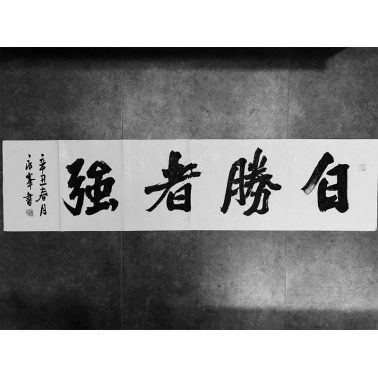 自勝者強
辛丑春月
峯書